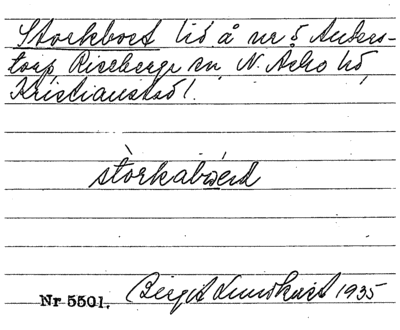 Storkbort lid å nr 5 Anders-
torp, Riseberga sn, N. Åsbo hd,
Kristianstad l.
stòrkabǫerd
Nr 5501. Birgit Lundkvist 1935